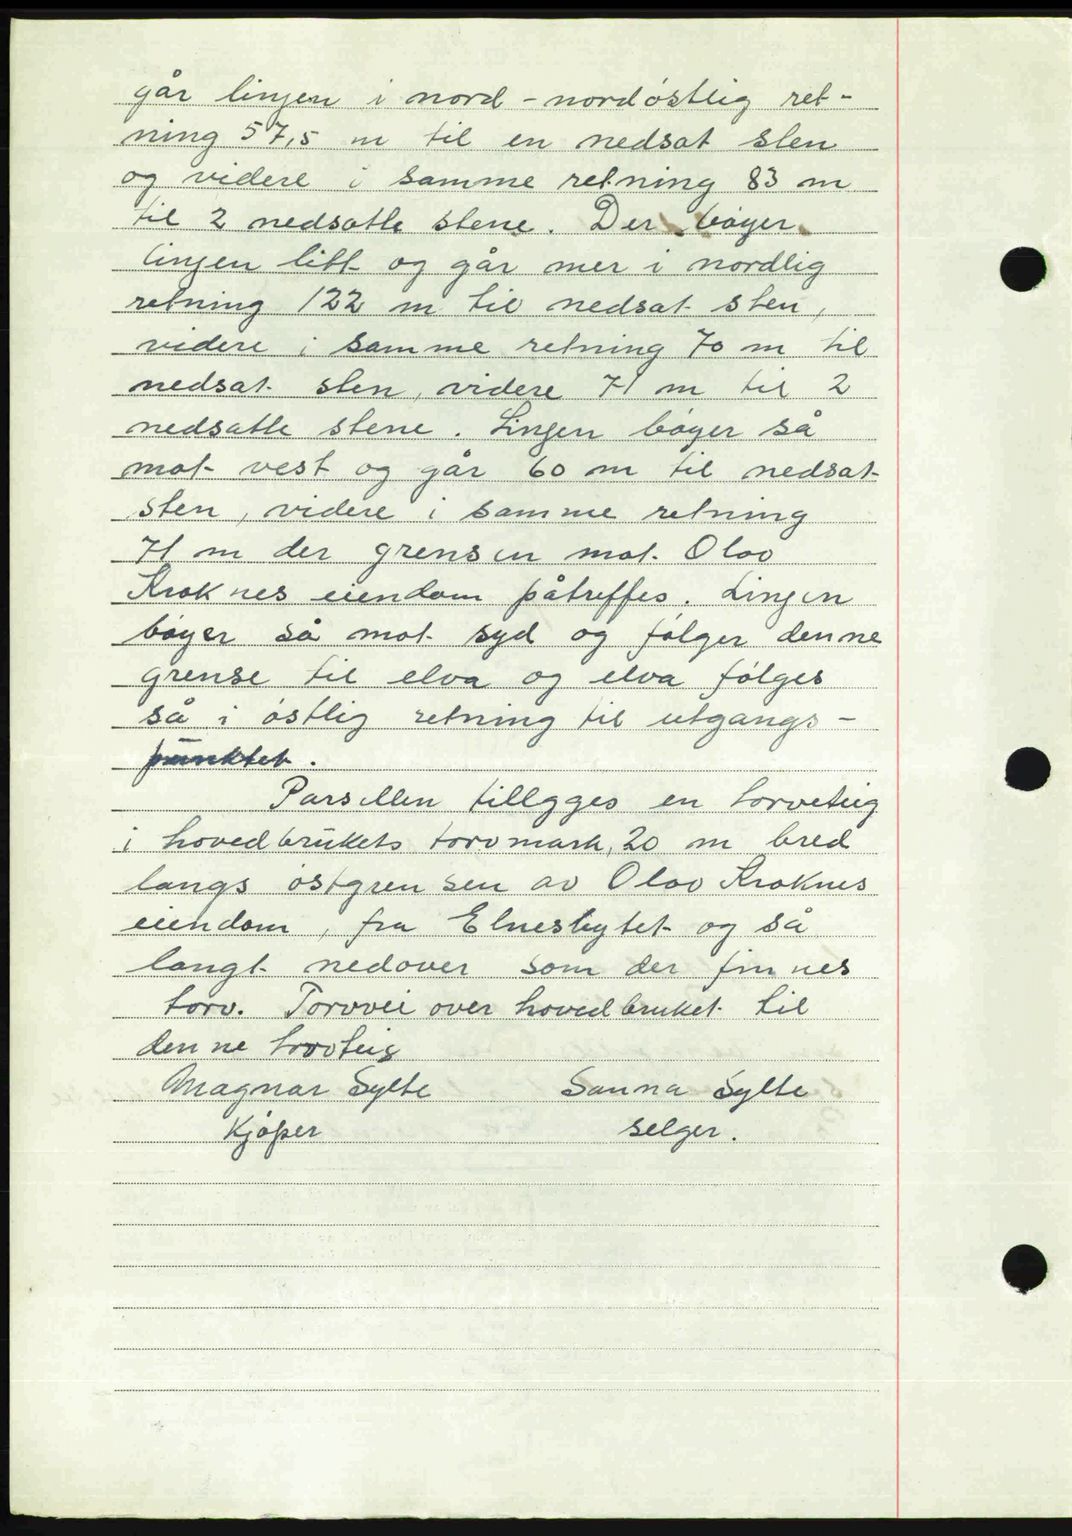 går linjen i nord-nordøstlig ret-
ning 57,5 m til en nedsat sten
og videre i samme retning 83 m
til 2 nedsatte stene. Der bøyer
linjen litt og går mer i nordlig
retning 122 m til nedsat sten,
videre i samme retning 70 m til
nedsat sten, videre 71 m til 2
nedsatte stene. Linjen bøyer så
mot vest og går 60 m til nedsat
sten, videre i samme retning
71 m der grensen mot Olav
Kroknes eiendom påtreffes. Linjen
bøyer så mot syd og følger denne
grense til elva og elva følges
så i østlig retning til utgangs-
punktet.
Parsellen tillegges en torvteig
i hovedbrukets torvmark, 20 m bred
langs østgrensen av Olav Kroknes
eiendom, fra Elnesbytet og så
langt nedover som der finnes
torv. Torvvei over hovedbruket til
denne torvteig
Magnar Sylte Sanna Sylte
Kjøper selger.